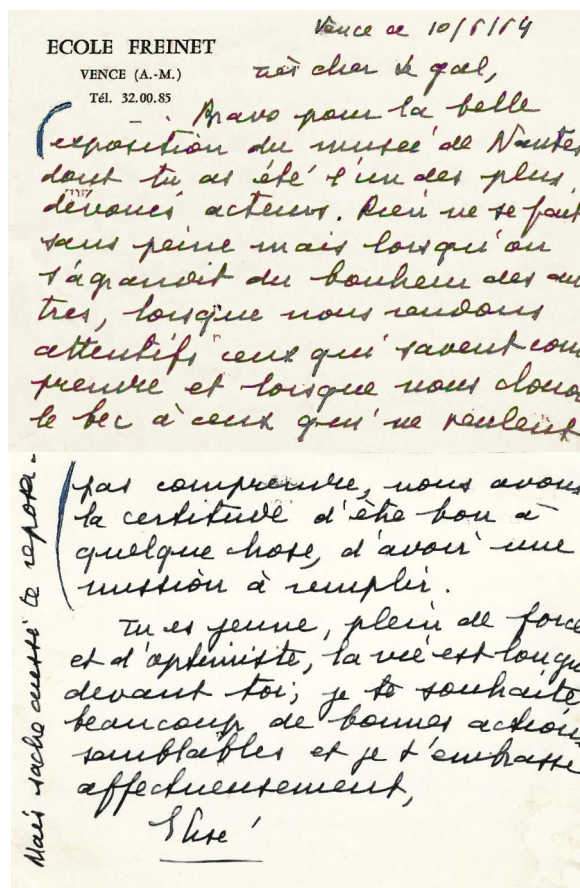 ECOLE FREINET
VENCE (A.-M.)
Tél. 32.00.85
Vence ce 10/5/64
Très cher Le Gal,
Bravo pour la belle
exposition du musée de Nantes
dont tu as été l'un des plus
dévoués acteurs. Rien ne se fait
sans peine mais lorsqu'on
s'agrandit du bonheur des au
tres, lorsque nous rendons
attentifs ceux qui savent com
prendre et lorsque nous clouo
le bec à ceux qui ne veulent
pas comprendre, nous avons
la certitude d'être bon à
quelque chose, d'avoir une
mission à remplir.
Tu es jeune, plein de force
et d'optimiste, la vie est longue
devant toi; je te souhaite
beaucoup de bonnes actions
semblables et je t'embrasse
affectueusement,
Elise
Mais sache aussi te reposer.